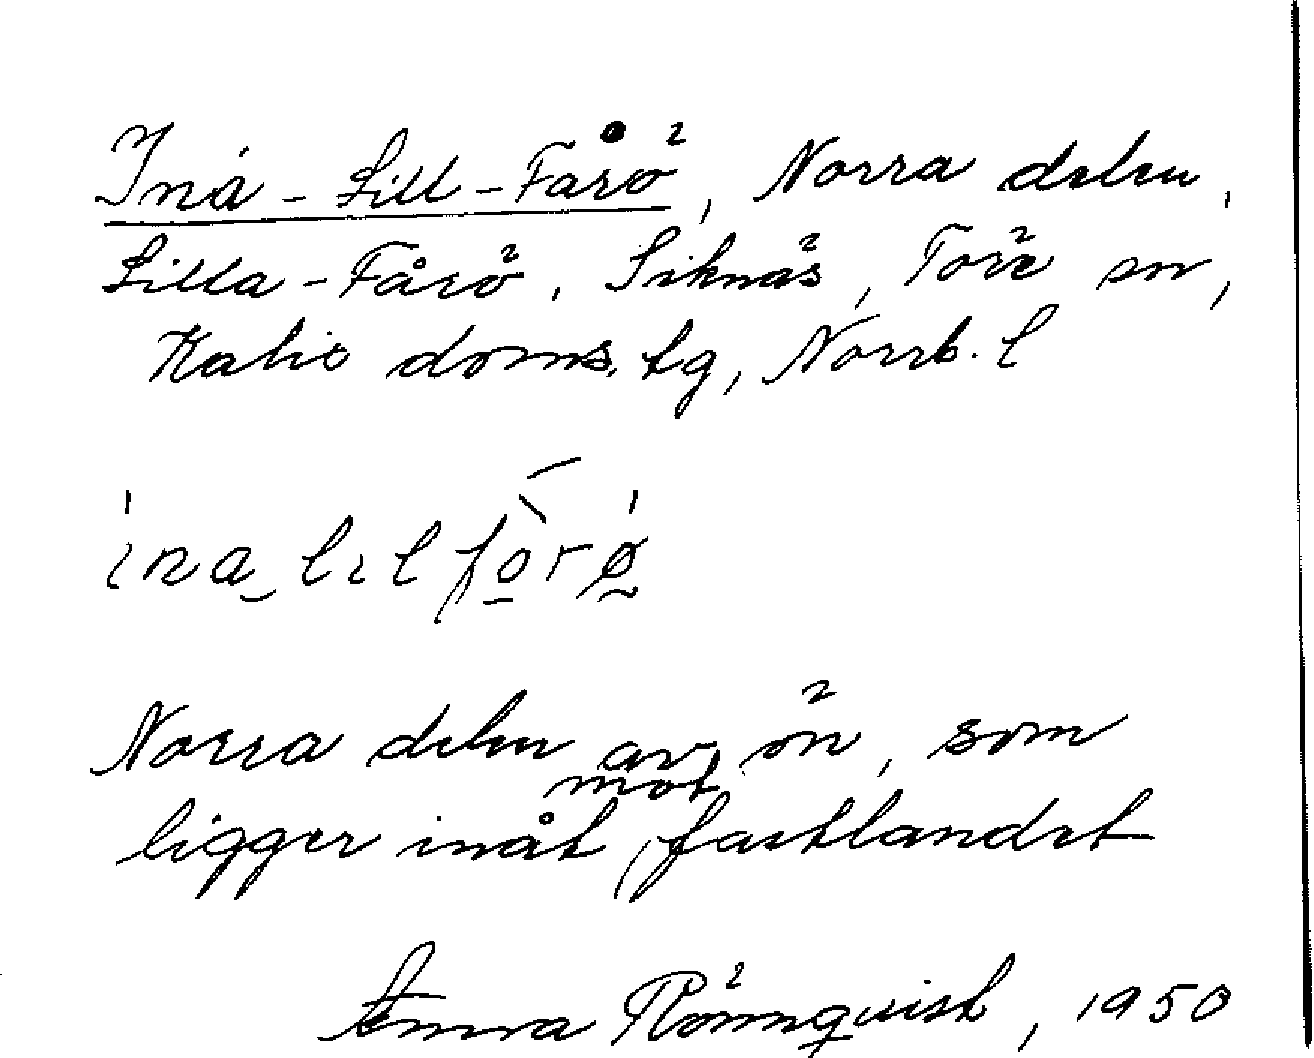 Iná - Lill - Fårö, Norra delen,
Lilla - Fårö, Siknäs, Töre sn,
Kalix doms. tg, Norrb. l
Norra delen av ön, som
ligger inåt mot fastlandet
Anna Rönnqvist, 1950